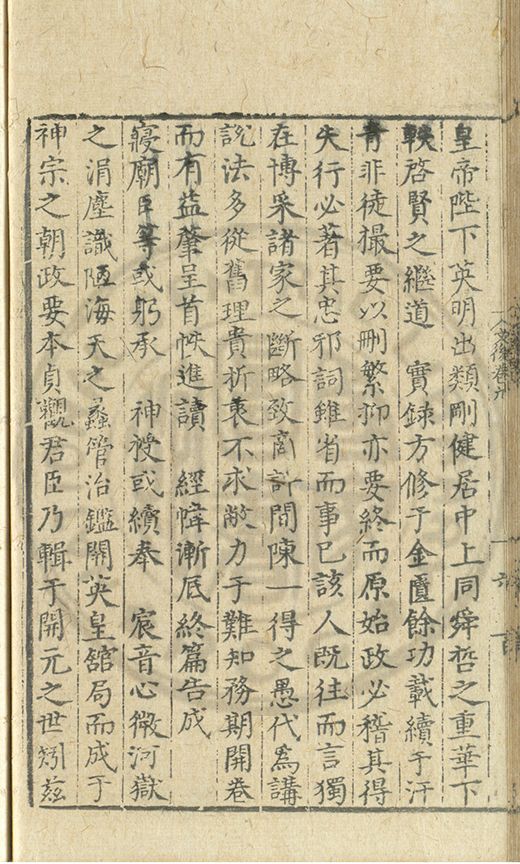 皇帝陛下英明出類剛健居中上同舜哲之重華下
軼啓賢之繼道　實録方修于金匱餘功載續于汗
青非徒撮要以刪繁抑亦要終而原始政必稽其得
失行必著其忠邪詞雖省而事已該人既往而言獨
在博采諸家之斷略致商訂間陳一得之愚代為講
說法多從舊理貴折衷不求敝力于難知務期開卷
而有益肇呈首帙進讀　經幃漸底終篇告成
寢廟臣等或躬承　神授或續奉　宸音心微河嶽
之涓塵識陋海天之蠡管治鑑開英皇舘局而成于
神宗之朝政要本貞觀君臣乃輯于開元之世矧茲